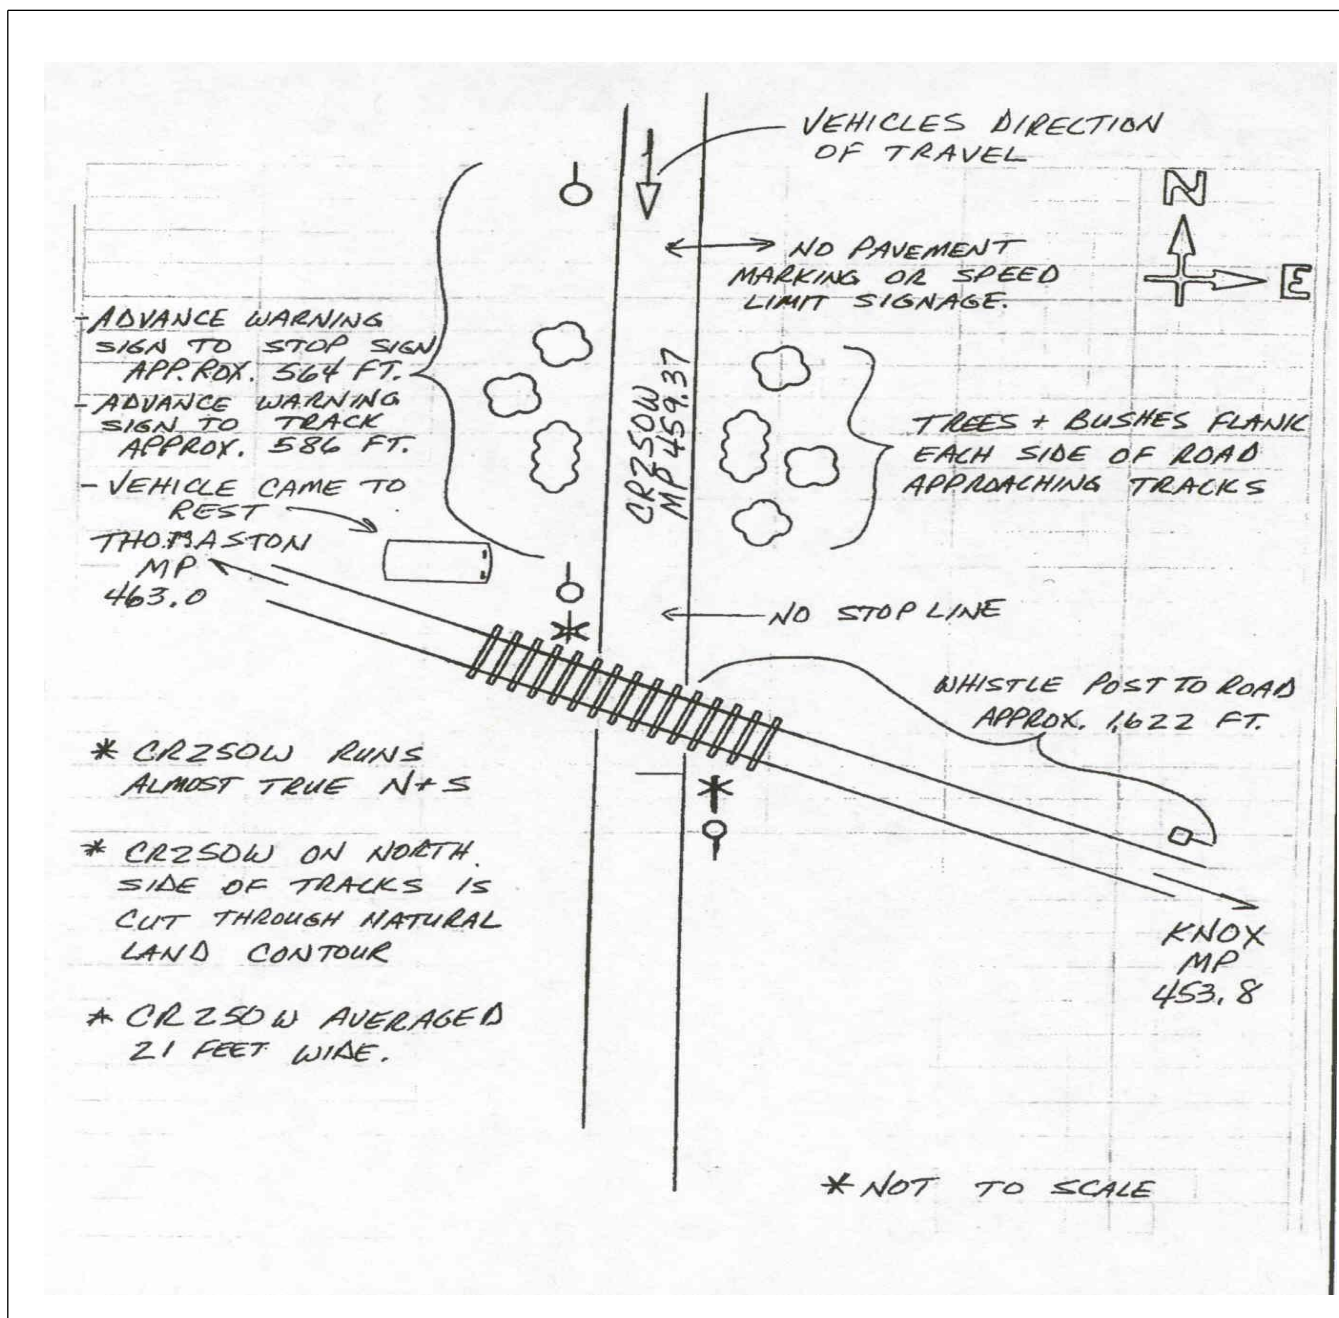 VEHICLES DIRECTION
OF TRAVEL
N
E
NO PAVEMENT
MARKING OR SPEED
LIMIT SIGNAGE.
- ADVANCE WARNING
SIGN TO STOP SIGN
APP.ROX. 564 FT.
- ADVANCE WARNING
SIGN TO TRACK
APPROX. 586 FT.
- VEHICLE CAME TO
REST
THOMASTON
MP
463.0
CR250W
MP 459.37
TREES + BUSHES FLANK
EACH SIDE OF ROAD
APPROACHING TRACKS
NO STOP LINE
WHISTLE POST TO ROAD
APPROX. 1,622 FT.
* CR250W RUNS
ALMOST TRUE N+S
* CR250W ON NORTH.
SIDE OF TRACKS IS
CUT THROUGH NATURAL
LAND CONTOUR
* CR250W AVERAGED
21 FEET WIDE.
KNOX
MP
453.8
* NOT TO SCALE